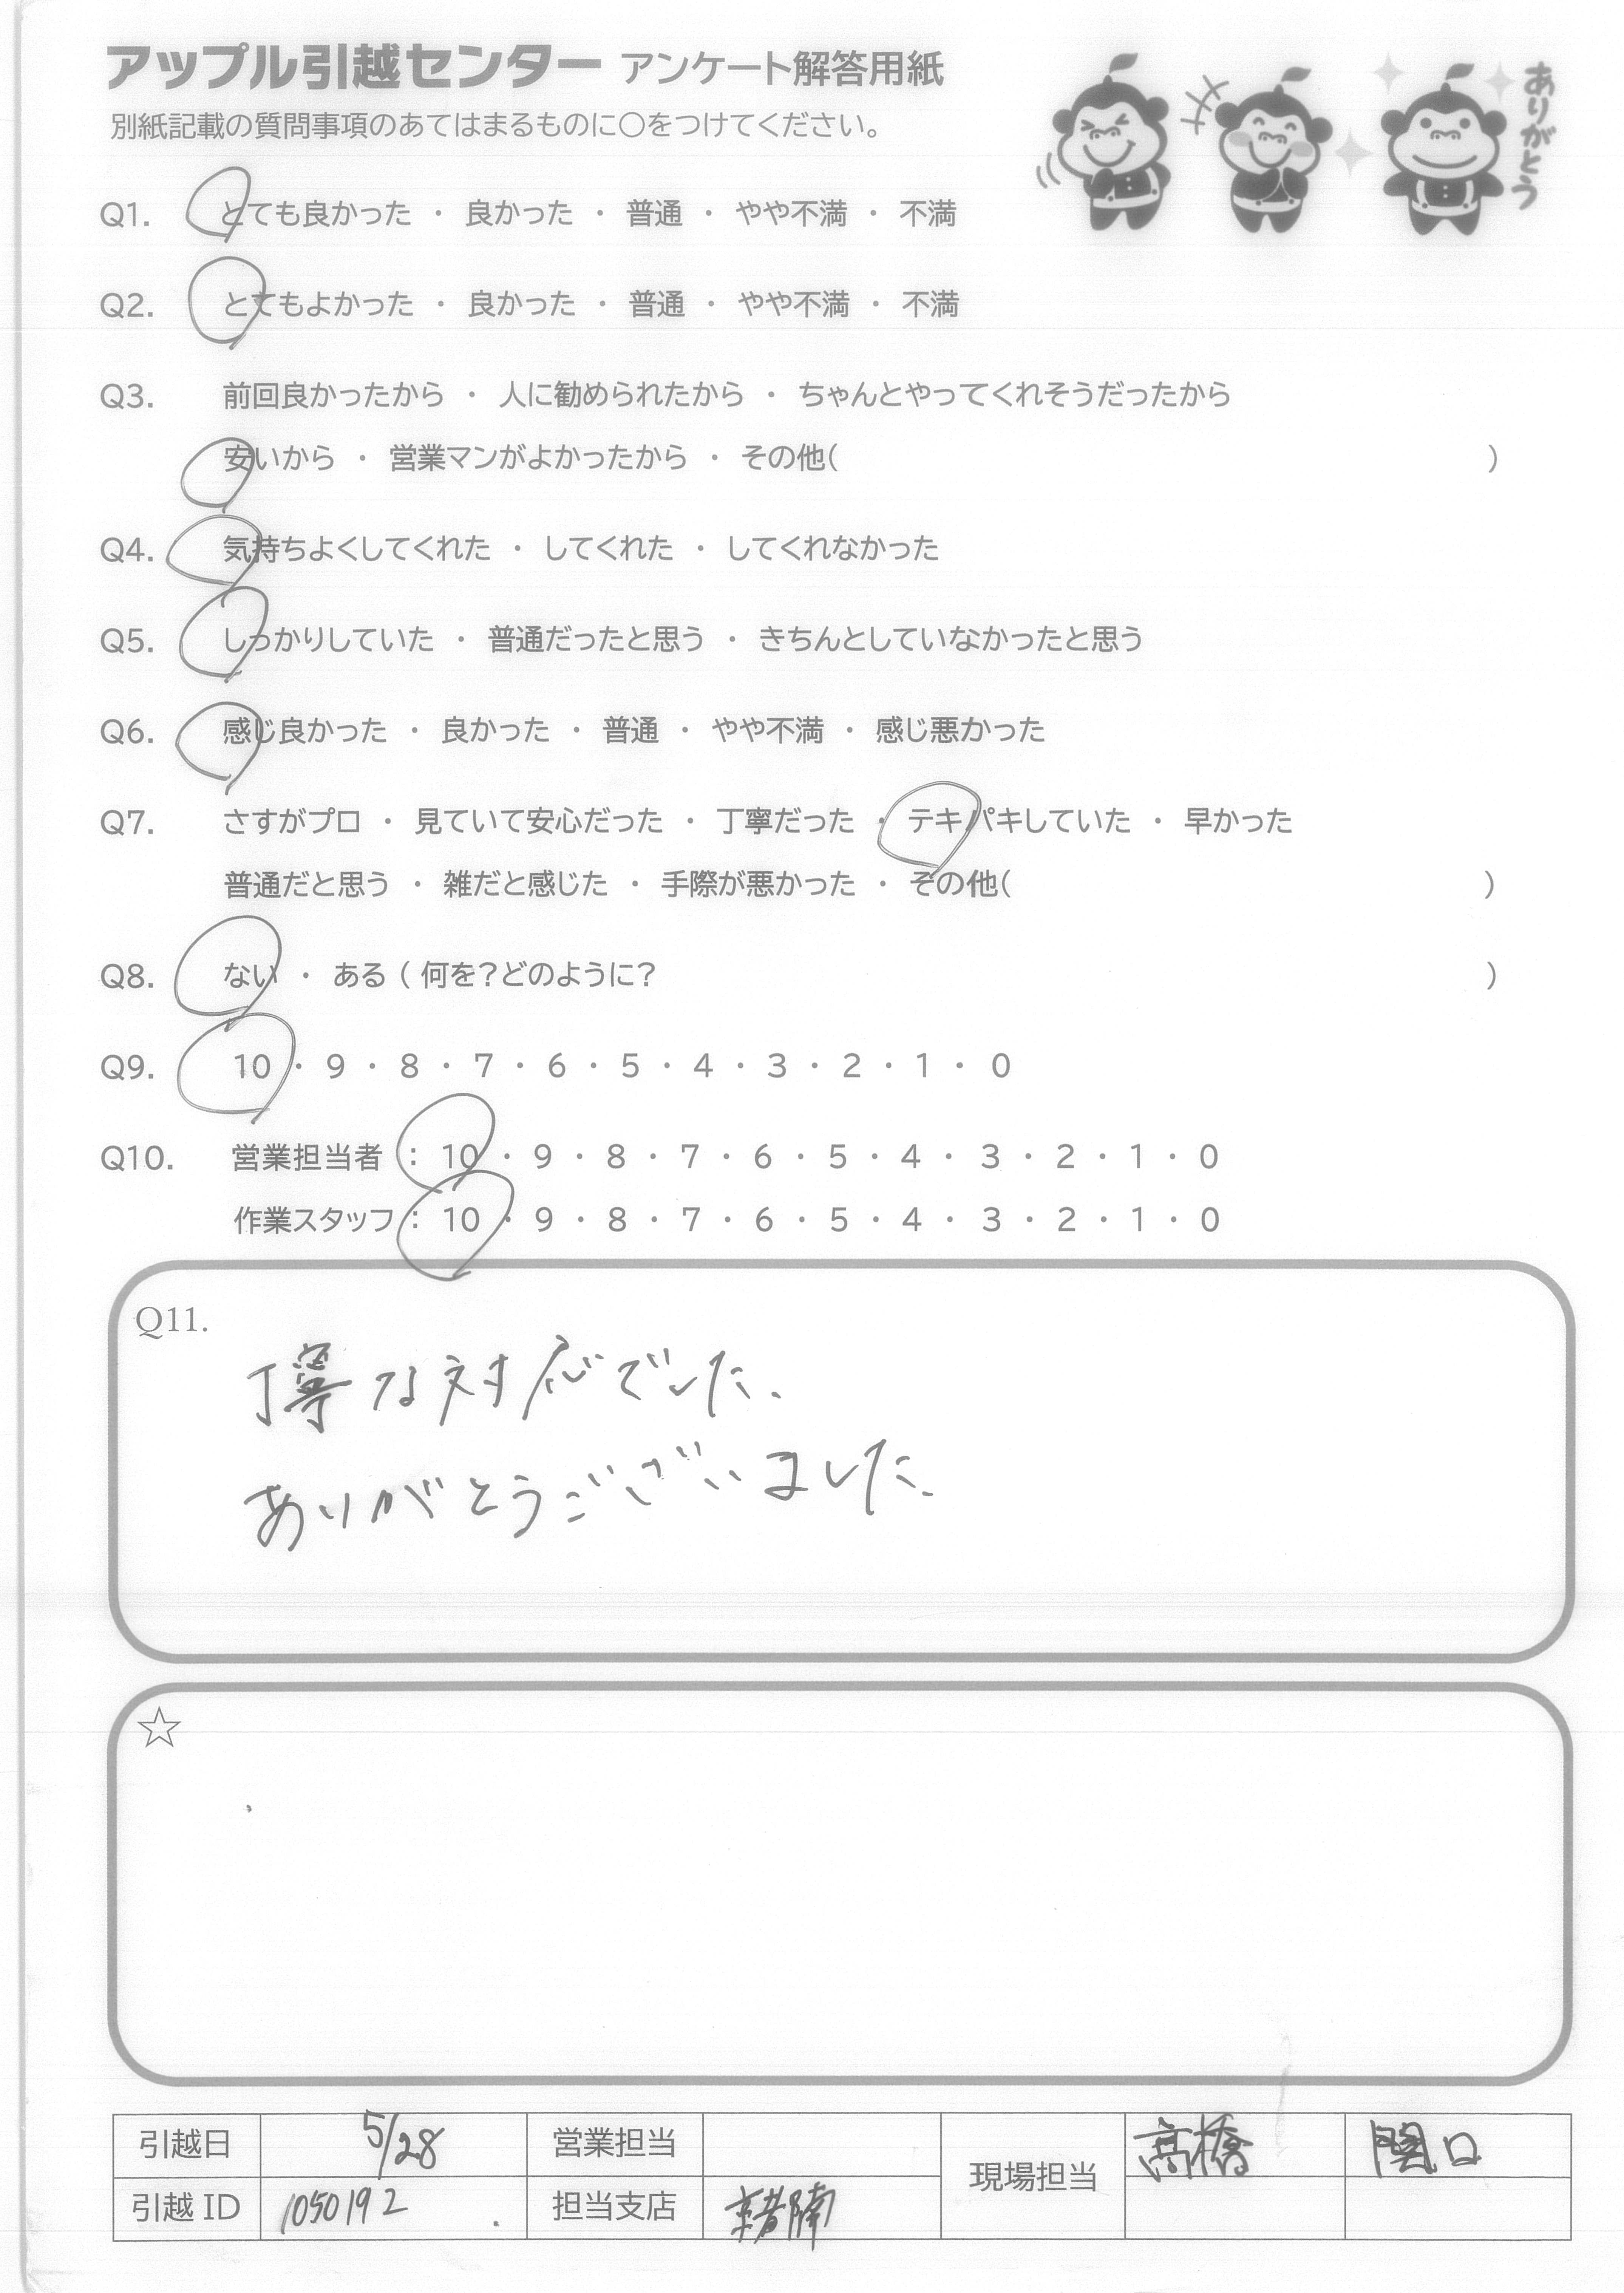 アップル引越センター アンケート解答用紙
ありがとう
別紙記載の質問事項のあてはまるものに〇をつけてください。
Q1. とても良かった ・ 良かった ・ 普通 ・ やや不満 ・ 不満
Q2. とてもよかった ・ 良かった ・ 普通 ・ やや不満 ・ 不満
Q3. 前回良かったから ・ 人に勧められたから ・ ちゃんとやってくれそうだったから
安いから ・ 営業マンがよかったから ・ その他( )
Q4. 気持ちよくしてくれた ・ してくれた ・ してくれなかった
Q5. しっかりしていた ・ 普通だったと思う ・ きちんとしていなかったと思う
Q6. 感じ良かった ・ 良かった ・ 普通 ・ やや不満 ・ 感じ悪かった
Q7. さすがプロ ・ 見ていて安心だった ・ 丁寧だった ・ テキパキしていた ・ 早かった
普通だと思う ・ 雑だと感じた ・ 手際が悪かった ・ その他( )
Q8. ない ・ ある ( 何を?どのように? )
Q9. 10 ・ 9 ・ 8 ・ 7 ・ 6 ・ 5 ・ 4 ・ 3 ・ 2 ・ 1 ・ 0
Q10. 営業担当者 : 10 ・ 9 ・ 8 ・ 7 ・ 6 ・ 5 ・ 4 ・ 3 ・ 2 ・ 1 ・ 0
作業スタッフ : 10 ・ 9 ・ 8 ・ 7 ・ 6 ・ 5 ・ 4 ・ 3 ・ 2 ・ 1 ・ 0
Q11.
丁寧な対応でした.
ありがとうございました.
☆
引越日 5/28 営業担当 現場担当 高橋 関口
引越 ID 1050192 担当支店